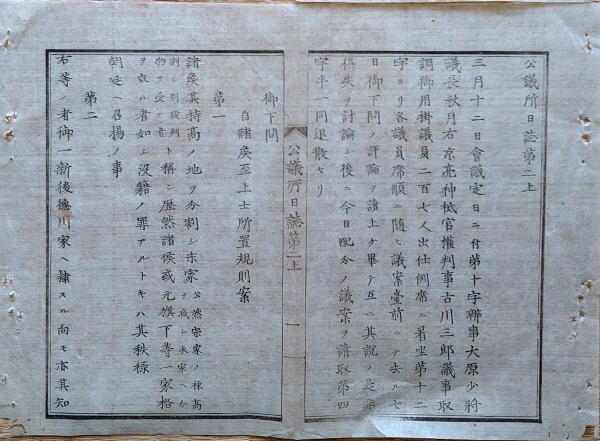 公議所日誌第二上
三月十二日會議定日ニ付第十字辨事大原少將
議長秋月右京亮神祇官權判事古川三郎議事取
調御用掛議員二百七人出仕例席ニ着坐第十二
字ヨリ各議員席順ニ隨ヒ議案臺前ニテ去ル七
日御下問ノ評論ヲ讀上ケ畢テ互ニ其説ノ是非
得失ヲ討論シ後ニ今日配分ノ議案ヲ請取第四
字半一同退散セリ
公議所日誌第二上
一
御下問
自諸矦至上士所置規則案
第一
諸矦其持高ノ地ヲ分割シ末家
公然宗家ノ祿高
ヲ減シ末家ヘ分
割
別段列
物ヲ受ル者
ト稱シ歴然諸侯或元旗下等一家格
ヲ立ル者如シ沒籍ノ罪アルトキハ其秩祿
朝廷ヘ召揚ノ事
第二
右等ノ者御一新後德川家ヘ隷スル向モ亦其知